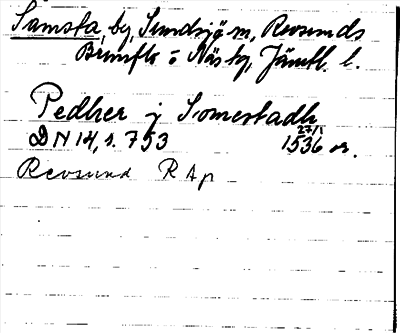 Sämsta, by, Sundsjö sn, Revsunds
Brunflo o Näs tg, Jämtl. l.
Pedher j Somestadh
27/1
DN 14, s. 753 1536 or.
Revsund R Ap